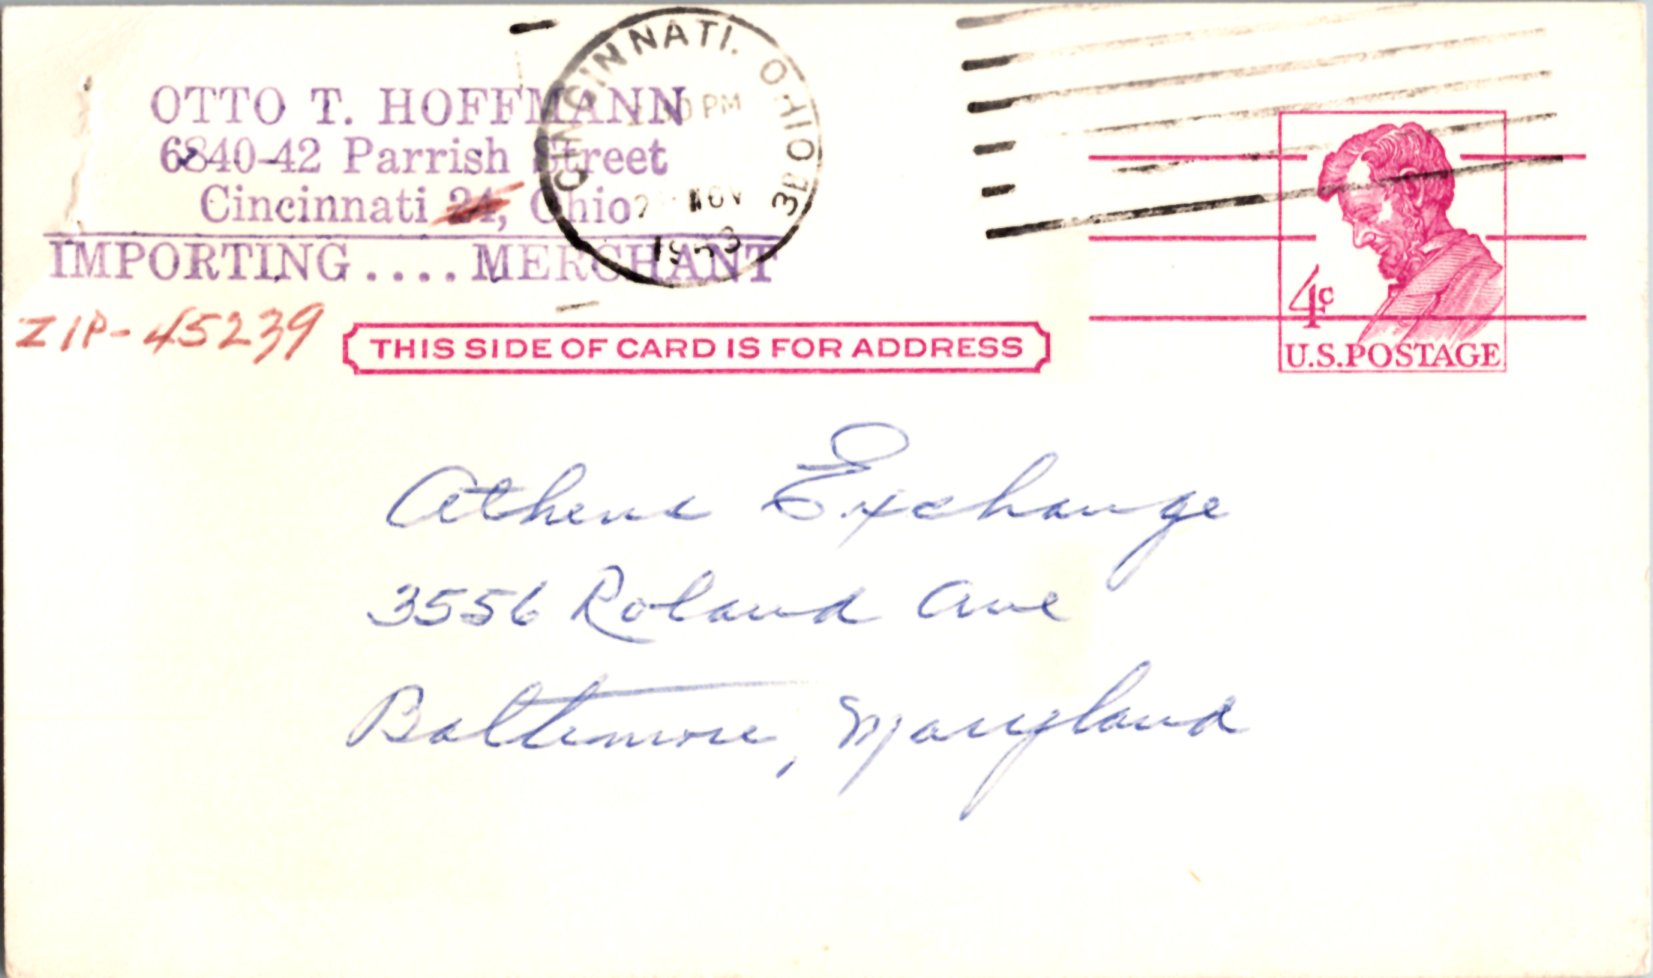 OTTO T. HOFFMANN
6840-42 Parrish Street
Cincinnati 24, Ohio
IMPORTING....MERCHANT
ZIP-45239
CINCINNATI, OHIO
PM
NOV
THIS SIDE OF CARD IS FOR ADDRESS
4c
U.S.POSTAGE
Athena Exchange
3556 Roland Ave
Baltimore, Maryland